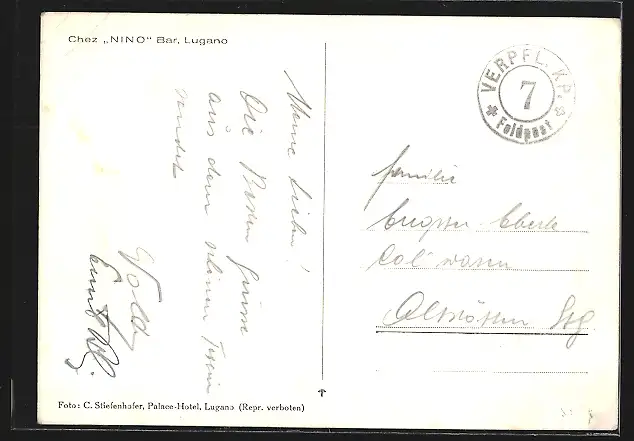 Chez „NINO“ Bar, Lugano
Meine Lieben!
Die besten Grüsse
aus dem schönen Tessin
sendet
VERPFL. KP.
7
* Feldpost *
Familie
Eberle
Colwaren
Altstätten Stg
Foto: C. Stiefenhofer, Palace-Hotel, Lugano (Repr. verboten)